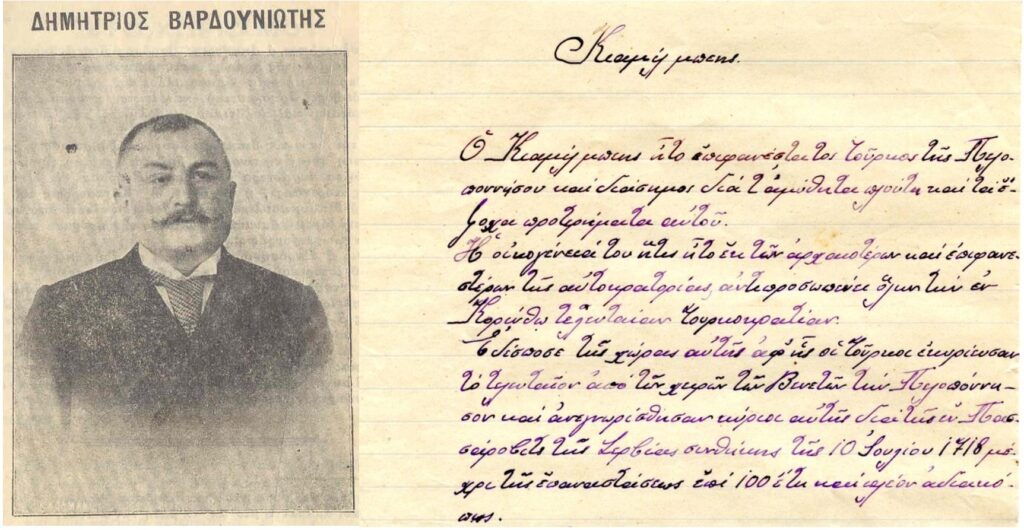 ΔΗΜΗΤΡΙΟΣ ΒΑΡΔΟΥΝΙΩΤΗΣ
Κιαμήλ μπεης.
Ὁ Κιαμήλ μπεης ἦτο ἐπιφανέστατος Τοῦρκος τῆς Πελο-
ποννήσου καὶ διάσημος διὰ τ' ἀμύθητα πλούτη καὶ τὰ ἔ-
ξοχα προτερήματα αὐτοῦ.
Ἡ οἰκογένειά του ἥτις ἦτο ἐκ τῶν ἀρχαιοτέρων καὶ ἐπιφανε-
στέρων τῆς αὐτοκρατορίας, ἀντιπροσωπεύει ὅλην τὴν ἐν
Κορίνθῳ τελευταίαν Τουρκοκρατίαν.
Ἐδέσποσε τῆς χώρας αὐτῆς ἀφ' ἧς οἱ Τοῦρκοι ἐκυρίευσαν
τὸ τελευταῖον ἀπὸ τῶν χειρῶν τῶν Βενετῶν τὴν Πελοπόννη-
σον καὶ ἀνεγνωρίσθησαν κύριοι αὐτῆς διὰ τῆς ἐν Πασ-
σάροβιτς τῆς Σερβίας συνθήκης τῆς 10 Ἰουλίου 1718 μέ-
χρι τῆς ἐπαναστάσεως ἐπὶ 100 ἔτη καὶ πλέον ἀδιακό-
πως.